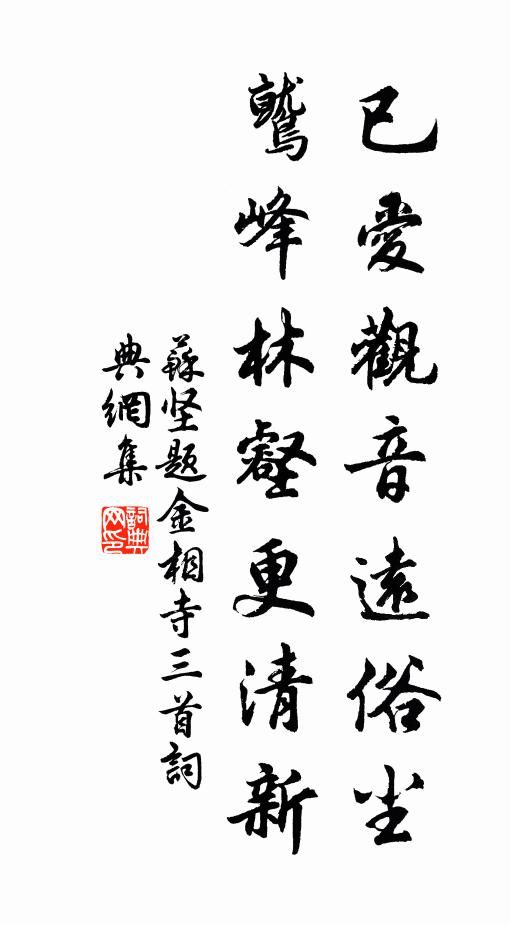 已愛觀音遠俗尘
鷲峰林壑更清新
蘇坚题金相寺三首詞
典網集
詞典
网印